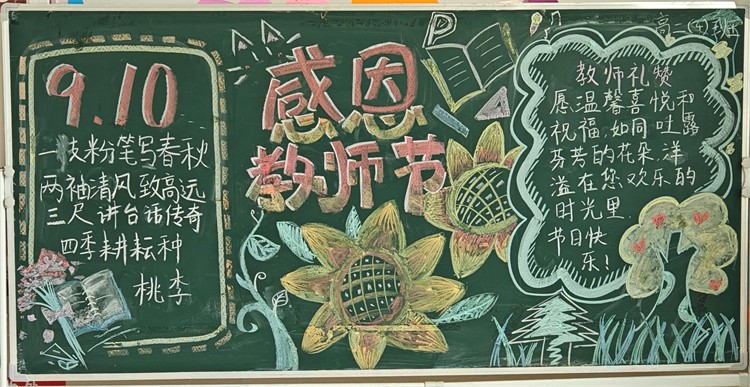 9.10
一支粉笔写春秋
两袖清风致高远
三尺讲台话传奇
四季耕耘种
桃李
感恩
教师节
高二(5)班
教师礼赞
愿温馨喜悦和
祝福,如同吐露
芬芳的花朵,洋
溢在您欢乐的
时光里.
节日快
乐!